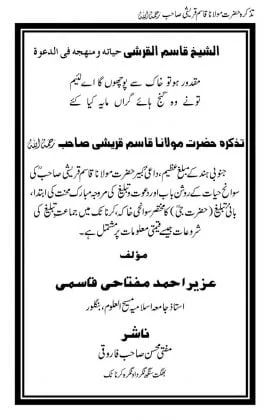 تذکرہ حضرت مولانا قاسم قریشی صاحب رحمۃ اللہ علیہ
الشیخ قاسم القرشی حیاتہ ومنھجہ فی الدعوۃ
مقدور ہو تو خاک سے پوچھوں گا اے لئیم
تو نے وہ گنج ہائے گراں مایہ کیا کئے
تذکرہ حضرت مولانا قاسم قریشی صاحب رحمۃ اللہ علیہ
جنوبی ہند کے مبلغ عظیم، داعی کبیر حضرت مولانا قاسم قریشی صاحب کی
سوانح حیات کے روشن باب اور دعوت و تبلیغ کی مروجہ مبارک محنت کی ابتدا،
بانی تبلیغ (حضرت جی) کا مختصر سوانحی خاکہ، کرناٹک میں جماعت تبلیغ کی
شروعات جیسے قیمتی معلومات پر مشتمل ہے۔
مؤلف
عزیر احمد مفتاحی قاسمی
استاذ جامعہ اسلامیہ مسیح العلوم، بنگلور
ناشر
مفتی محسن صاحب فاروقی
بھگت سنگھ نگر داونگرہ کرناٹک